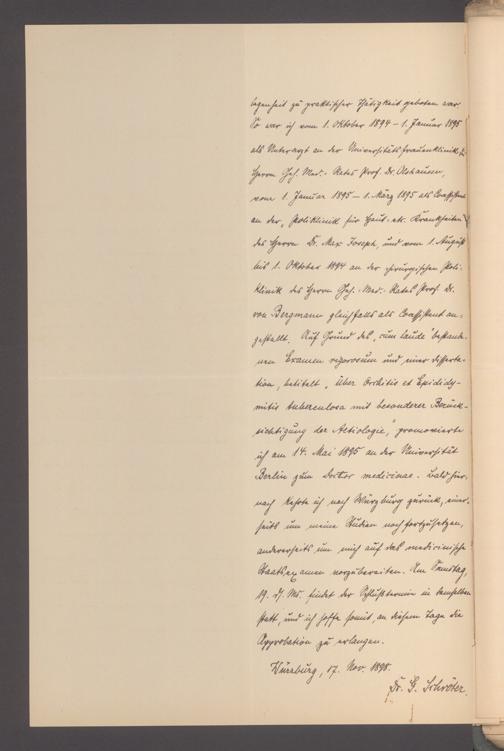 legenheit zu praktischer Thätigkeit geboten war
So war ich vom 1. Oktober 1894 – 1. Januar 1895
als Unterarzt an der Universitätsfrauenklinik d.
Herrn Geh. Med.- Rates Prof. Dr. Olshausen,
vom 1. Januar 1895 – 1. März 1895 als Assistent
an der „Poliklinik für Haut- etc. Krankheiten“
des Herrn Dr. Max Joseph, und vom 1. August
bis 1. Oktober 1894 an der chirurgischen Poli-
klinik des Herrn Geh. Med.- Rates Prof. Dr.
von Bergmann gleichfalls als Assistent an-
gestellt. Auf Grund des „cum laude“ bestande-
nen Examen rigorosum und einer Disserta-
tion, betitelt „Über Orchitis et Epididy-
mitis tuberculosa mit besonderer Berück-
sichtigung der Aetiologie,“ promovierte
ich am 14. Mai 1895 an der Universität
Berlin zum Doctor medicinae. Bald hier-
nach kehrte ich nach Würzburg zurück, einer-
seits um meine Studien noch fortzusetzen,
andererseits um mich auf das medicinische
Staatsexamen vorzubereiten. Am Samstag,
19. ds. Ms. findet der Schlußtermin in demselben
statt, und ich hoffe somit, an diesem Tage die
Approbation zu erlangen.
Würzburg, 17. Nov. 1898.
Dr. G. Schröter.